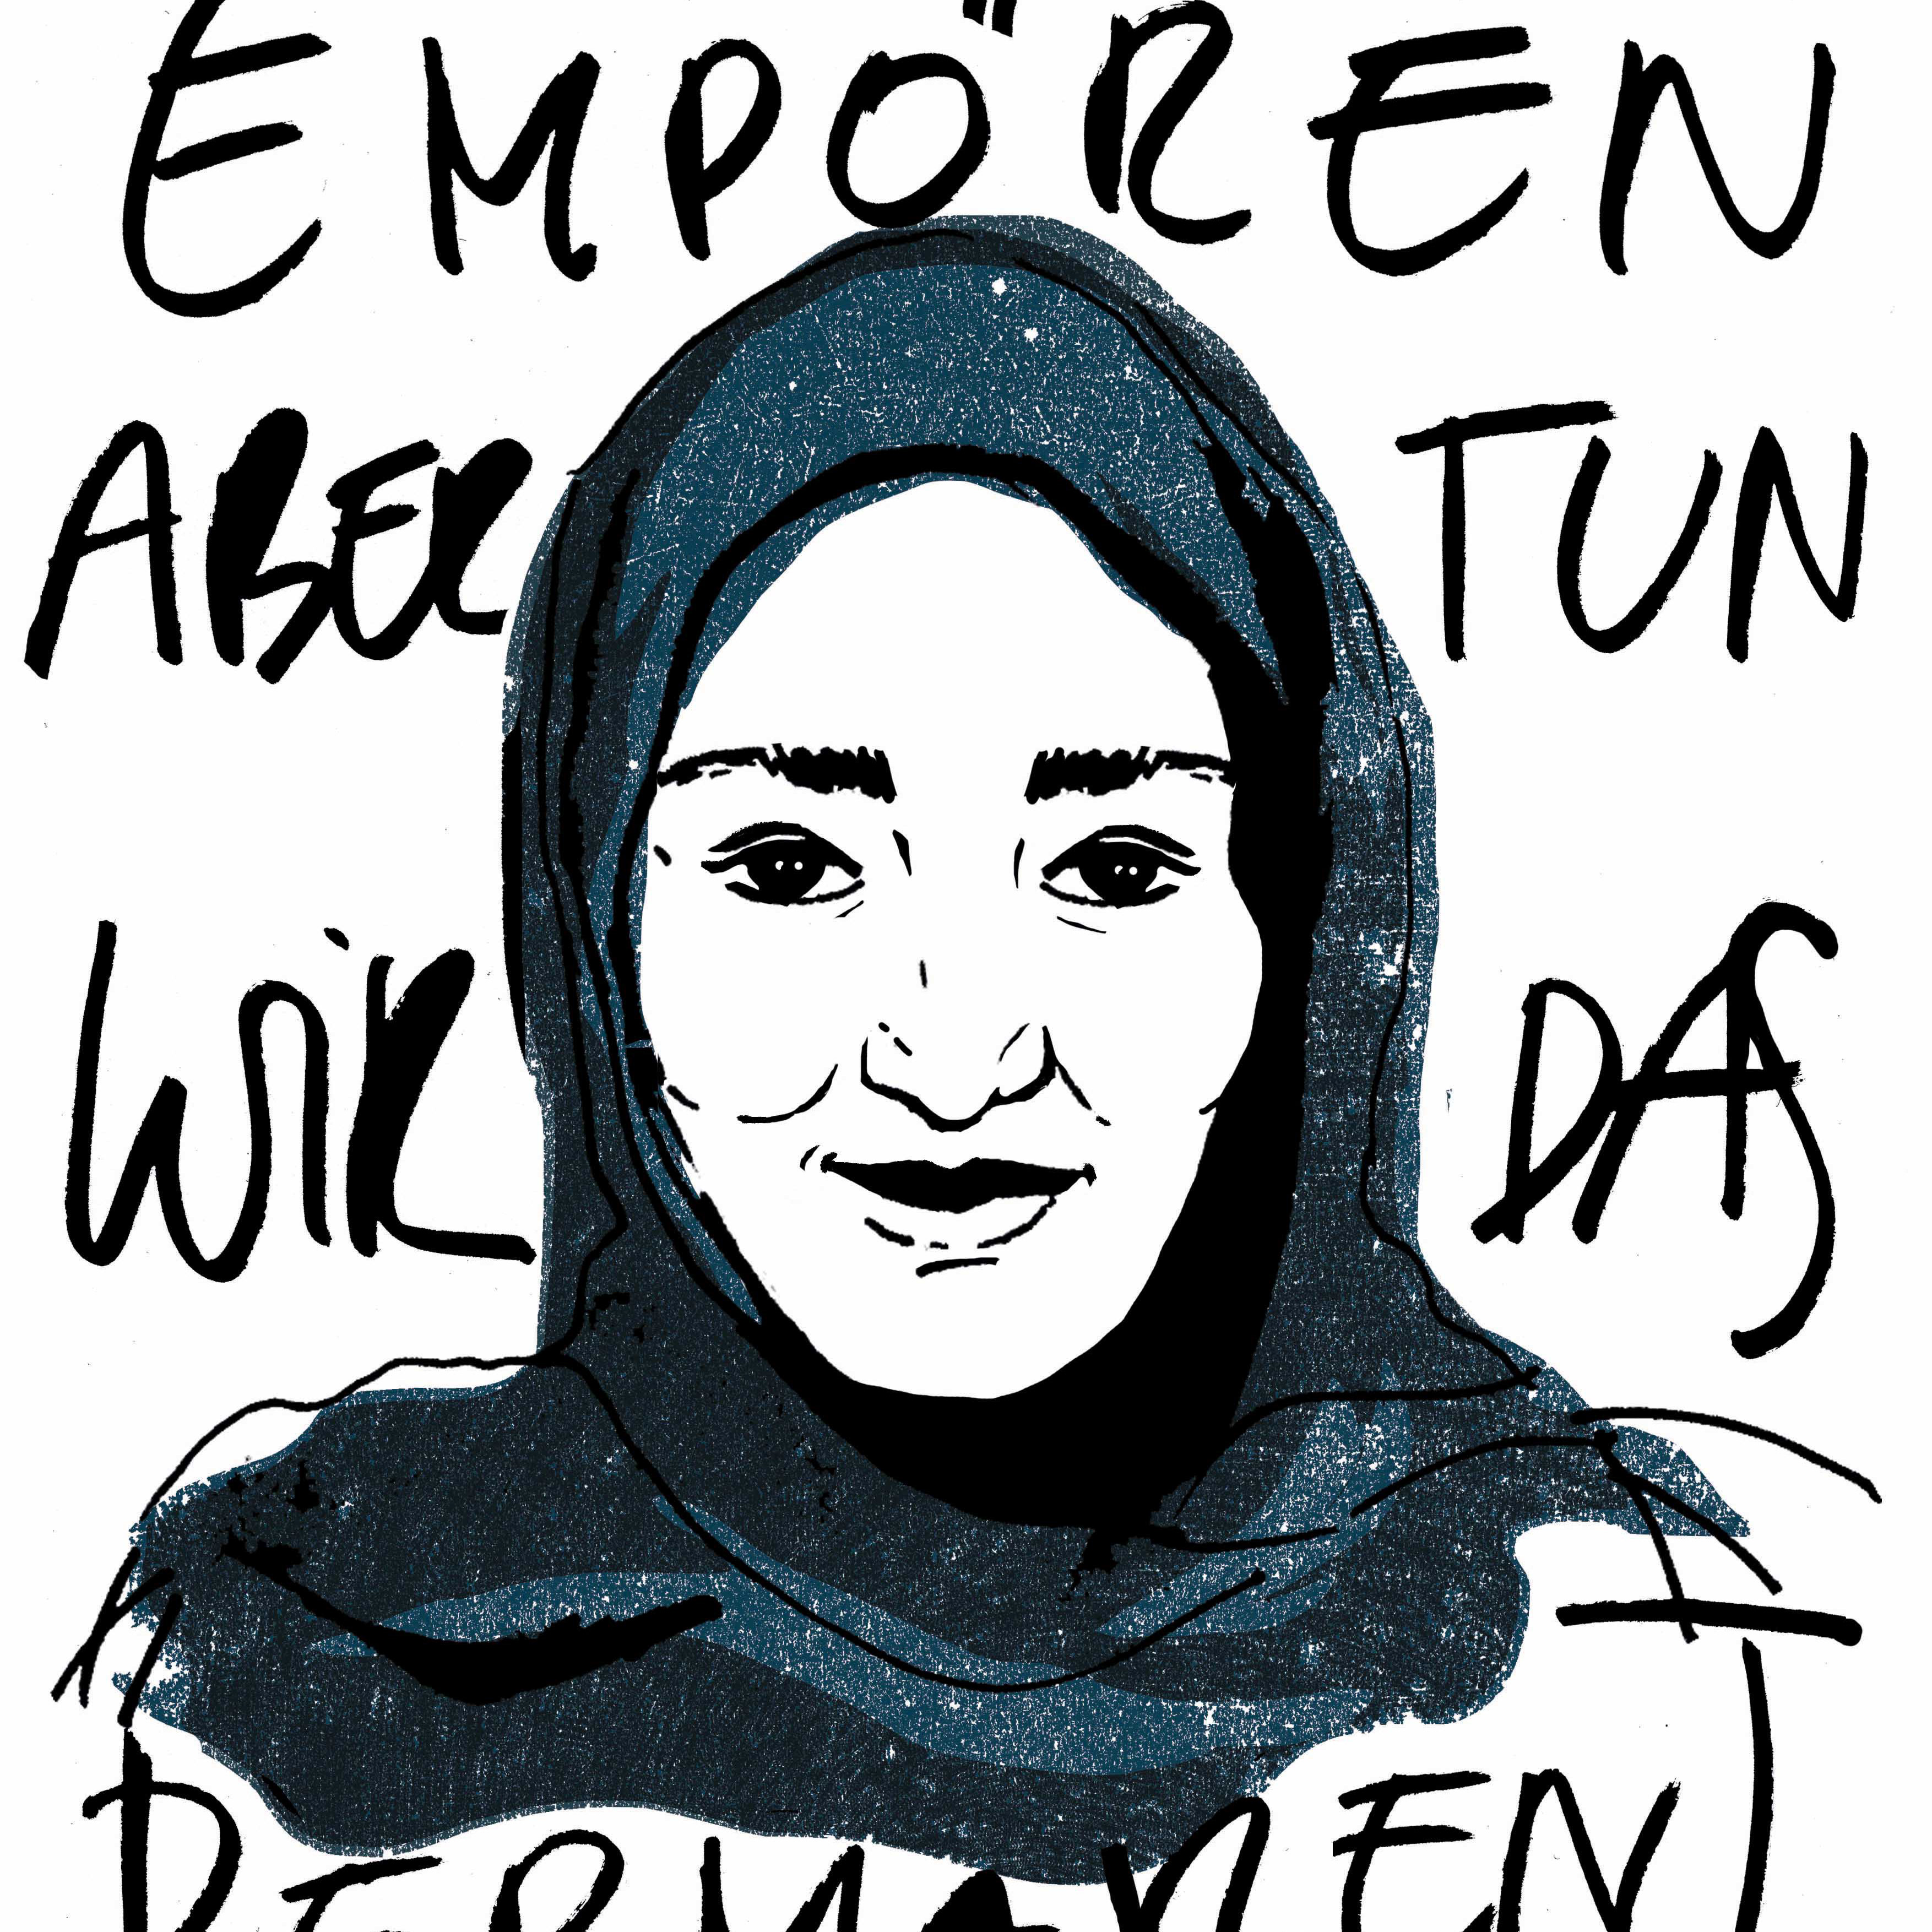 EMPÖREN
ABER TUN
WIR DAS
PERMANENT